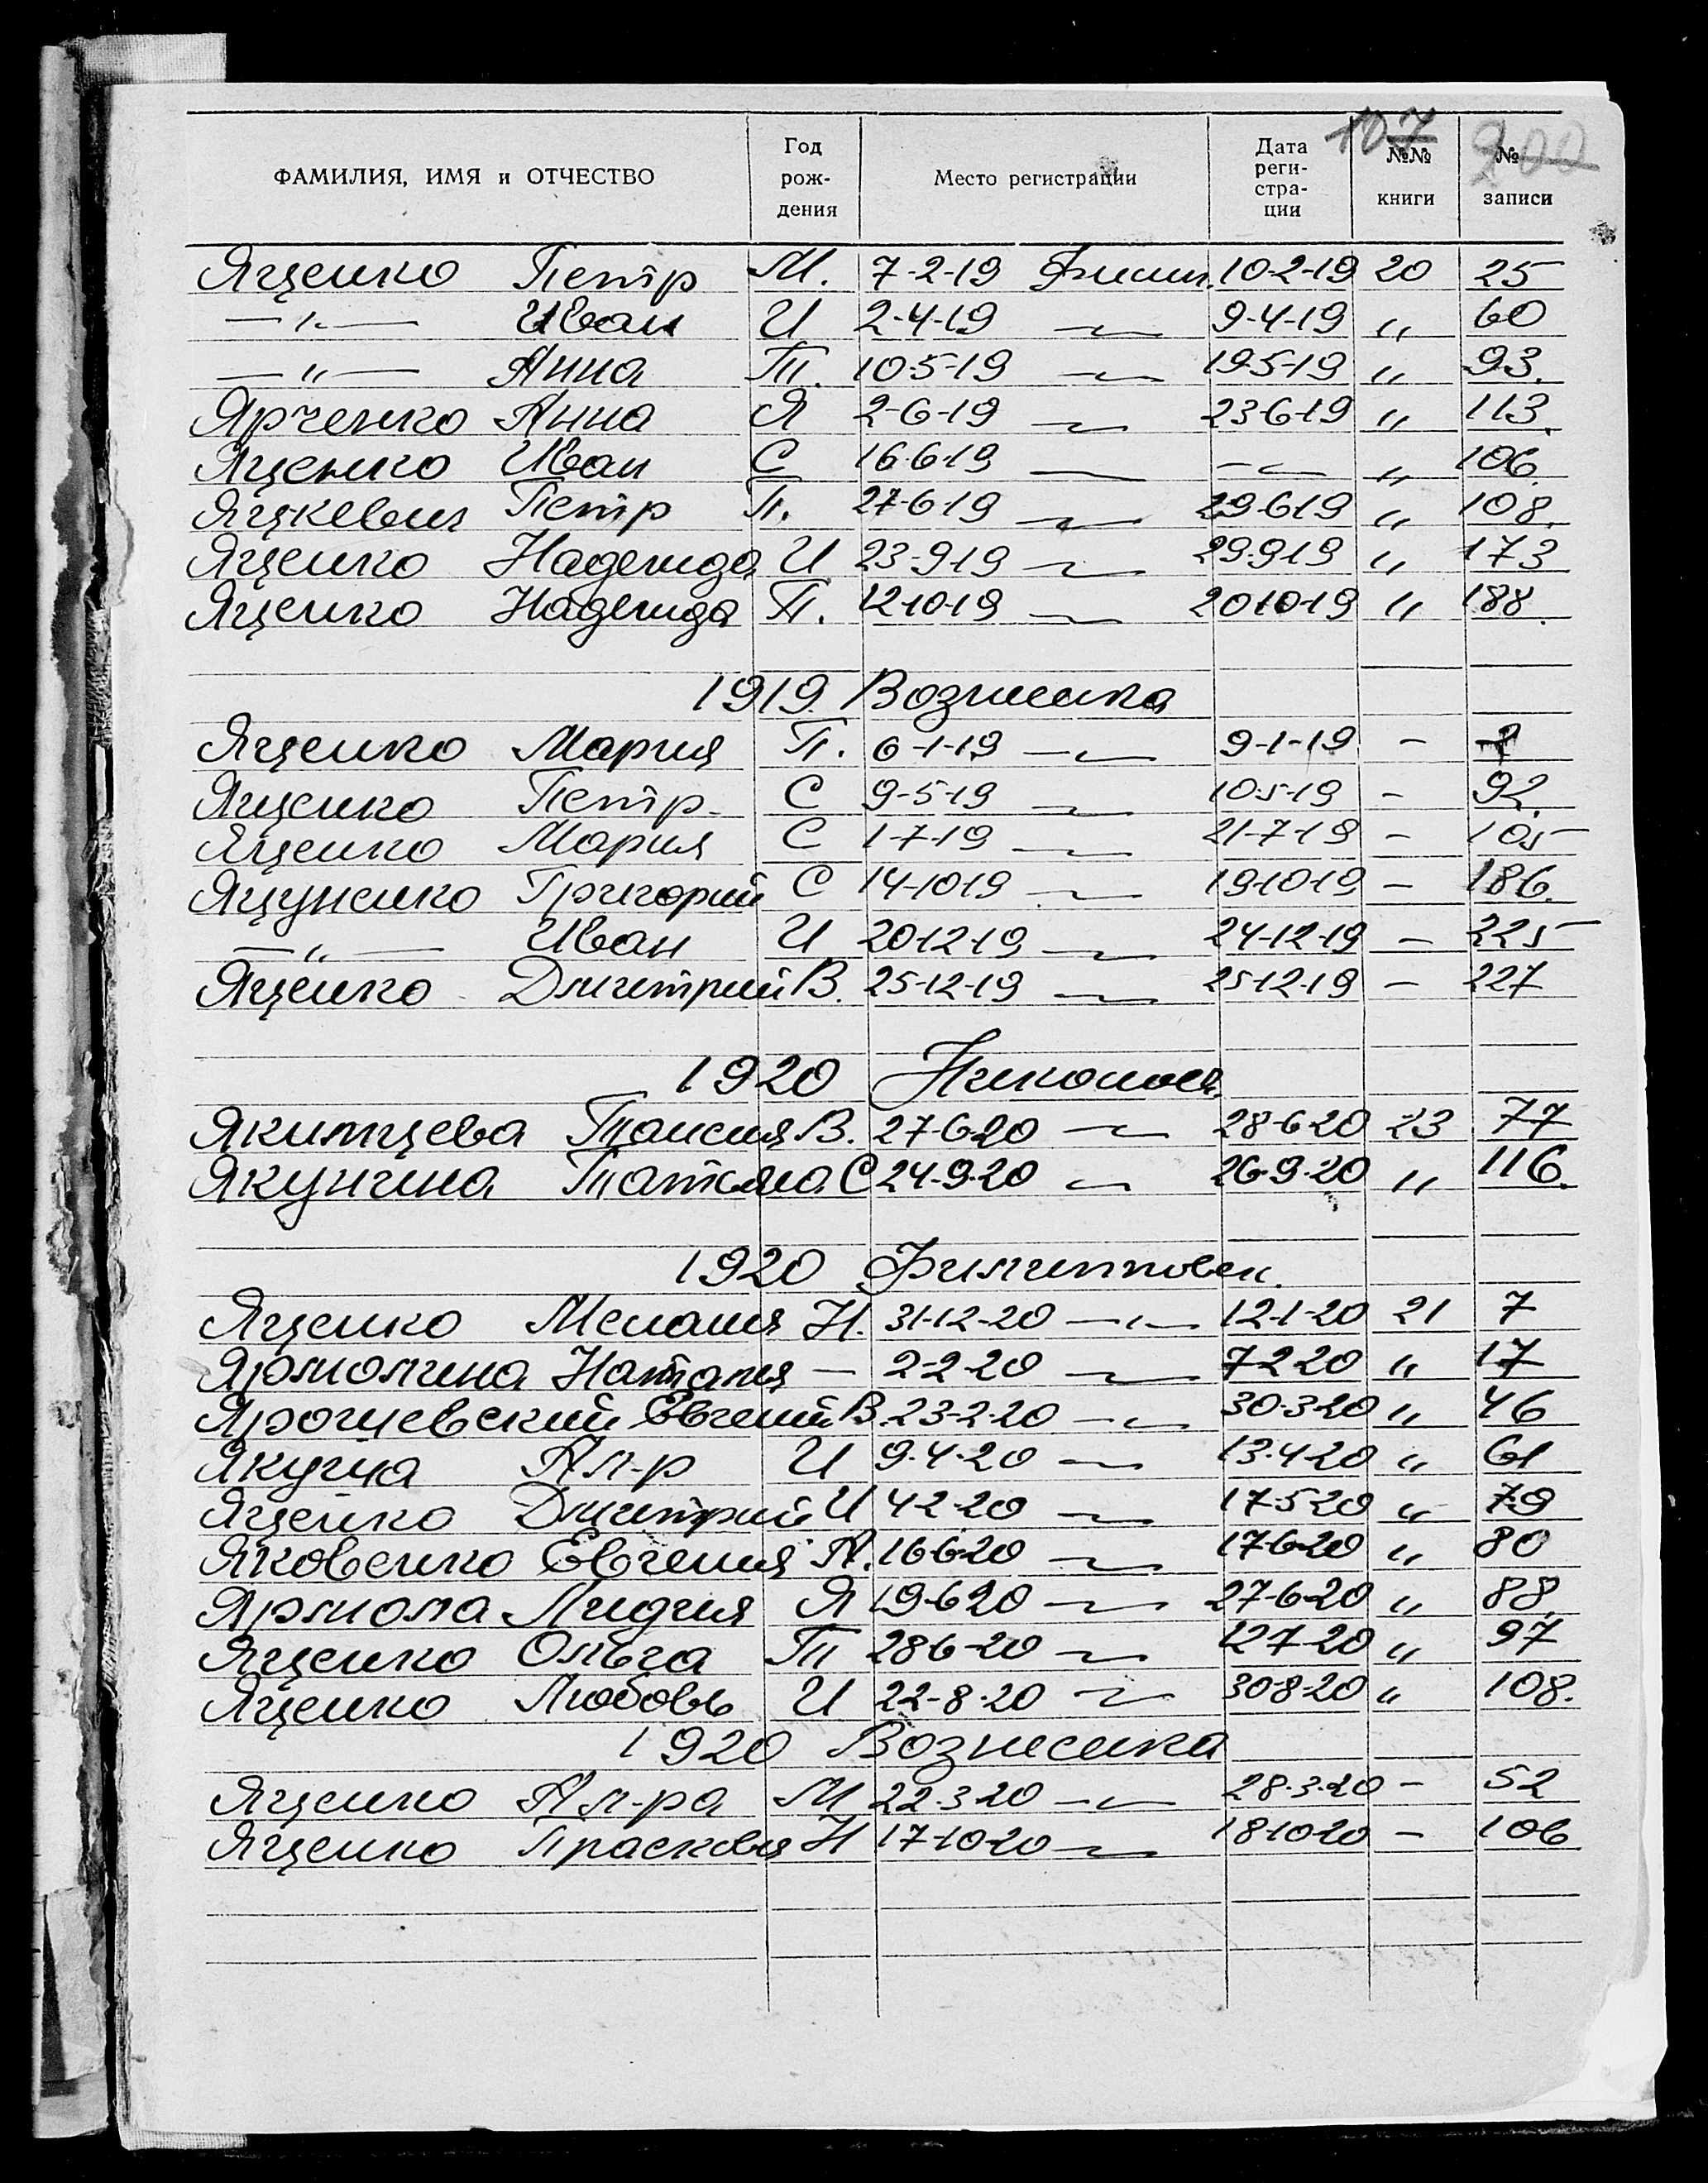 107 200
ФАМИЛИЯ, ИМЯ и ОТЧЕСТВО Год рож- дения Место регистрации Дата реги- стра- ции №№ книги № записи
Яценко Петр М. 7-2-19 Филип. 10-2-19 20 25
—〃— Иван И 2-4-19 —〃— 9-4-19 〃 60
—〃— Анна Т. 10-5-19 —〃— 19-5-19 〃 93.
Ярченко Анна Я 2-6-19 —〃— 23-6-19 〃 113.
Яценко Иван С 16-6-19 —〃— —〃— 〃 106.
Яцкевич Петр П. 27-6-19 —〃— 29-6-19 〃 108.
Яценко Надежда И 23-9-19 —〃— 29-9-19 〃 173
Яценко Надежда П. 12-10-19 —〃— 20-10-19 〃 188.
1919. Вознесенка
Яценко Мария П. 6-1-19 —〃— 9-1-19 –
Яценко Петр. С 9-5-19 —〃— 10-5-19 – 92.
Яценко Мария С 1-7-19 —〃— 21-7-19 – 105
Яцуненко Григорий С 14-10-19 —〃— 19-10-19 – 186.
—〃— Иван И 20-12-19 —〃— 24-12-19 – 225
Яценко Дмитрий В. 25-12-19 —〃— 25-12-19 – 227
1920 Николаев.
Якимцева Таисия В. 27-6-20 —〃— 28-6-20 23 77
Якунина Татьяна С 24-9-20 —〃— 26-9-20 〃 116.
1920 Филипповск.
Яценко Мелания Н. 31-12-20 —〃— 12-1-20 21 7
Ярмолина Наталия — 2-2-20 —〃— 7-2-20 〃 17
Ярошевский Евгений В. 23-2-20 —〃— 30-3-20 〃 46
Ал-р И 9-4-20 —〃— 13-4-20 〃 61
Яценко Дмитрий И 4-2-20 —〃— 17-5-20 〃 79
Яковенко Евгения А. 16-6-20 —〃— 17-6-20 〃 80
Ярмола Лидия Я 19-6-20 —〃— 27-6-20 〃 88.
Яценко Ольга Т 28-6-20 —〃— 12-7-20 〃 97
Яценко Любовь И 22-8-20 —〃— 30-8-20 〃 108.
1920 Вознесенка
Яценко Ал-ра М 22-3-20 —〃— 28-3-20 – 52
Яценко Прасковья Н 17-10-20 —〃— 18-10-20 – 106